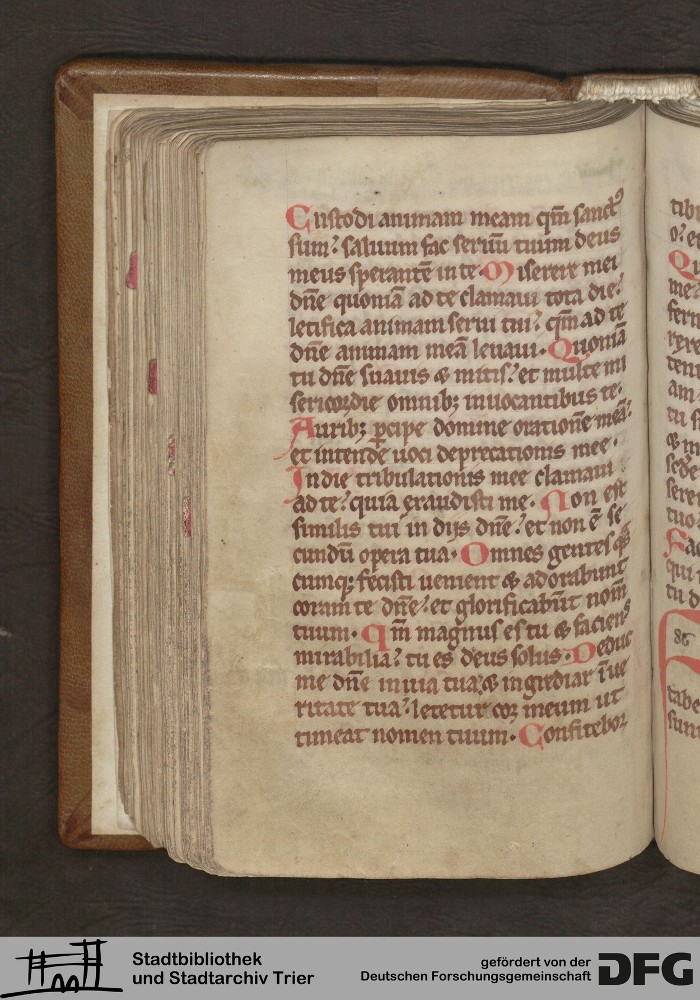 Custodi animam meam qm̄ sanctꝰ
sum? saluum fac seruū tuum deus
meus sperantē in te. Miserere mei
dn̄e quoniā ad te clamaui tota die?
letifica animam serui tui? qm̄ ad te
dn̄e animam meā leuaui. Quoniā
tu dn̄e suauis & mitis? et multe mi
sericordie omnibꝫ inuocantibus te.
Auribꝫ ꝑcipe domine orationē meā?
et intende uoci deprecationis mee.
In die tribulationis mee clamaui
ad te? quia exaudisti me. Non est
similis tui in dijs dn̄e? et non ē se
cundū opera tua. Omnes gentes qͣs
cumqꝫ fecisti uenient & adorabunt
coram te dn̄e? et glorificabūt nom̄
tuum. Qm̄ magnus es tu & faciens
mirabilia? tu es deus solus. Deduc
me dn̄e in uia tua & ingrediar ī ue
ritate tua? letetur cor meum ut
timeat nomen tuum. Confitebor
tibi
o? et
Qu
me?
tu d
86
tabe
sun
Stadtbibliothek
und Stadtarchiv Trier
gefördert von der
Deutschen Forschungsgemeinschaft
DFG